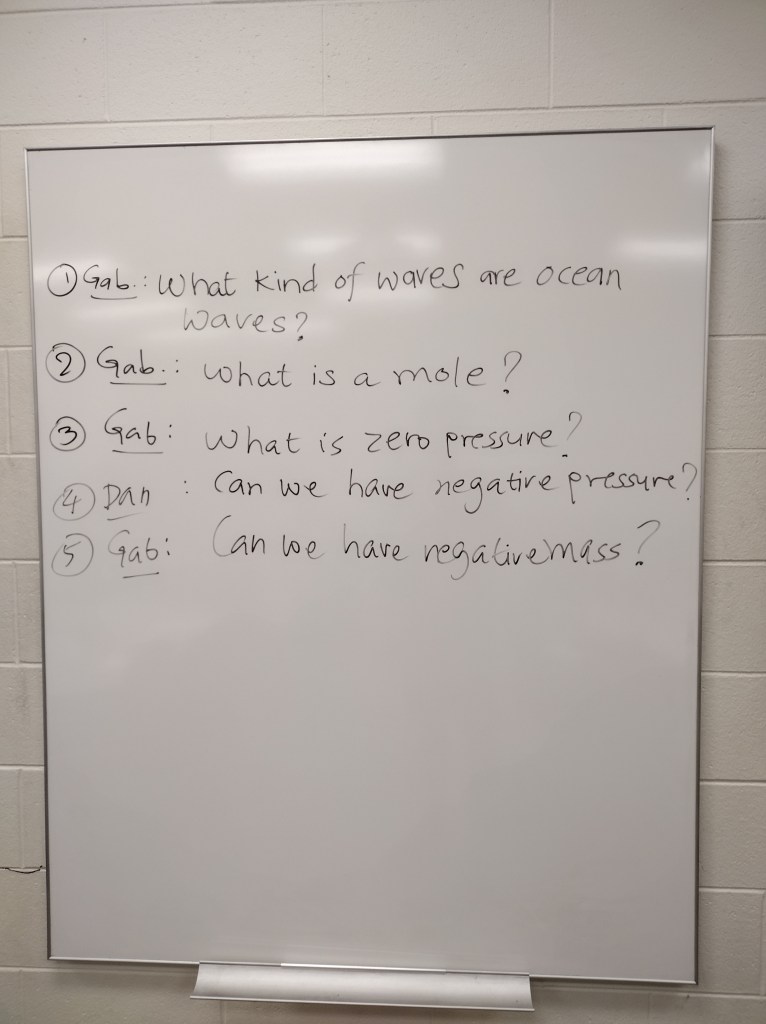 ① Gab.: What kind of waves are ocean
waves?
② Gab.: What is a mole?
③ Gab: What is zero pressure?
④ Dan : Can we have negative pressure?
⑤ Gab: Can we have negative mass?